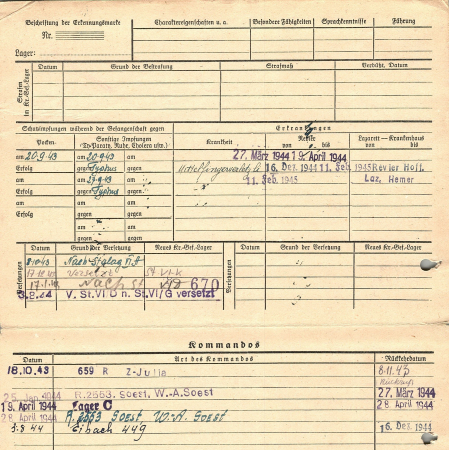 Beschriftung der Erkennungsmarke
Nr.
Lager:
Charaktereigenschaften u. a.
Besondere Fähigkeiten
Sprachkenntnisse
Führung
Strafen im Kr.-Gef.-Lager
Datum
Grund der Bestrafung
Strafmaß
Verbüßt, Datum
Schutzimpfungen während der Gefangenschaft gegen
Erkrankungen
Pocken
Sonstige Impfungen
(Ty-Paraty, Ruhr, Cholera usw.)
Krankheit
Revier
von
bis
Lazarett - Krankenhaus
von
bis
27. März 1944 19. April 1944
am 20.9.43
am 20.9.43
am
16. Dez. 1944 11. Feb. 1945 Revier Hoff.
Erfolg
gegen Typhus
gegen
11. Feb. 1945
Laz. Hemer
am
am 27.9.43
am
Erfolg
gegen Typhus
gegen
am
am
am
Erfolg
gegen
gegen
am
am
gegen
gegen
Versetzungen
Datum
Grund der Versetzung
Neues Kr.-Gef.-Lager
Versetzungen
Datum
Grund der Versetzung
Neues Kr.-Gef.-Lager
8.10.43
Nach Stalag
Nach
670
3.8.44
V. St.VI D n. St.VI/G versetzt
Kommandos
Datum
Art des Kommandos
Rückkehrdatum
18.10.43
659 R
Z-Julia
8.11.43
25. Jan. 1944
R.2553. Soest. W.A.Soest
27. März 1944
19. April 1944
Lager C
28. April 1944
28. April 1944
R. 2553 Soest W.-A. Soest
3.8 44
Eibach 449
16. Dez. 1944